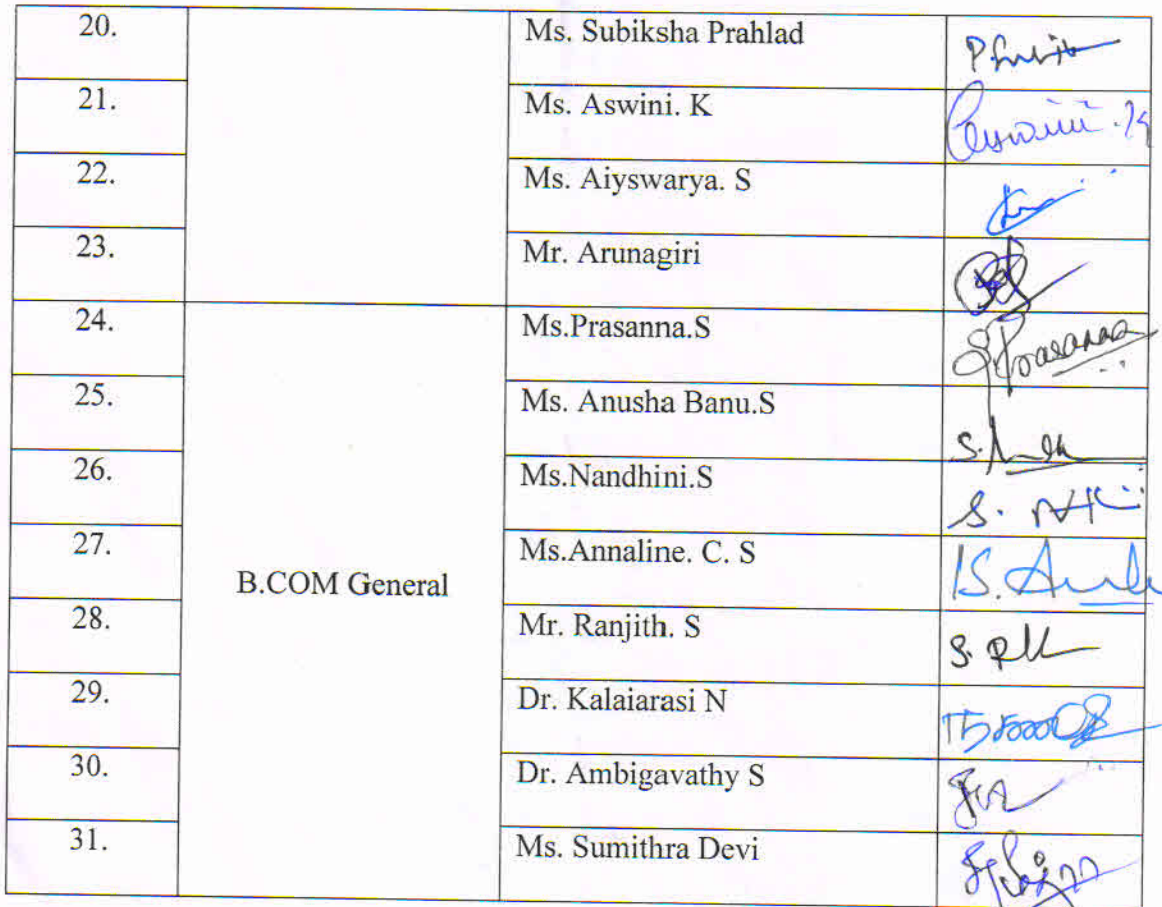 20. Ms. Subiksha Prahlad
21. Ms. Aswini. K Aswini .K
22. Ms. Aiyswarya. S
23. Mr. Arunagiri
24. Ms.Prasanna.S S.Prasanna
25. Ms. Anusha Banu.S
26. Ms.Nandhini.S
27. Ms.Annaline. C. S
B.COM General
28. Mr. Ranjith. S
29. Dr. Kalaiarasi N
30. Dr. Ambigavathy S
31. Ms. Sumithra Devi